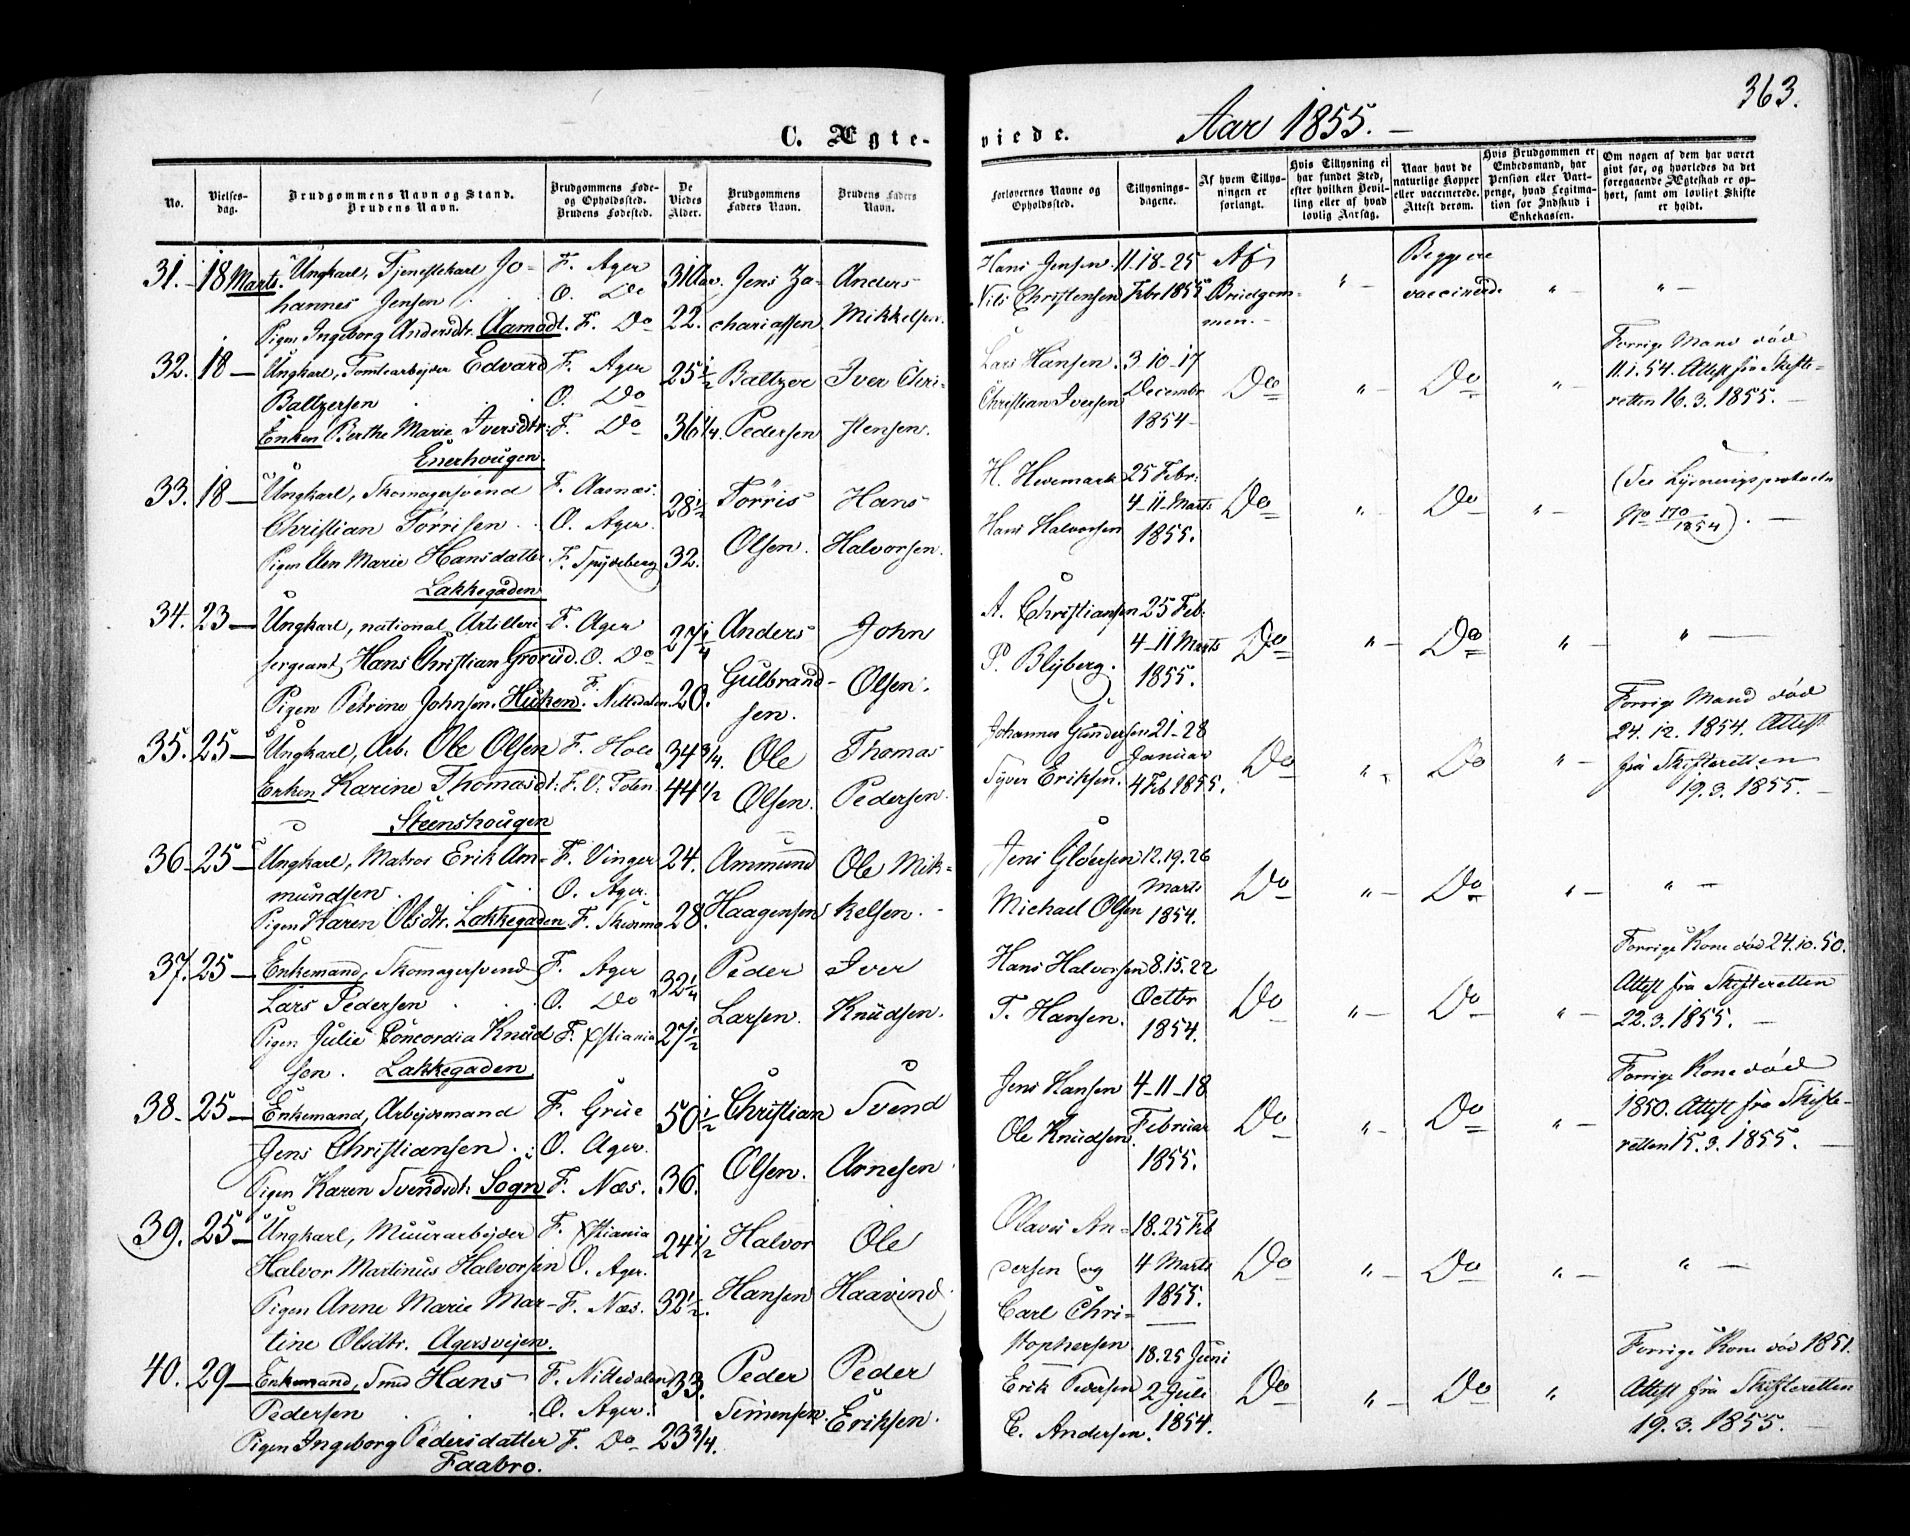 363.
C. Ægteviede. Aar 1855. —
No.
Vielses-
dag.
Brudgommens Navn og Stand.
Brudens Navn.
Brudgommens Føde-
og Opholdssted.
Brudens Fødested.
De
Viedes
Alder.
Brudgommens
Faders Navn.
Brudens Faders
Navn.
Forlovernes Navne og
Opholdssted.
Tillysnings-
dagene.
Af hvem Tillys-
ningen er
forlangt.
Hvis Tillysning ei
har fundet Sted,
efter hvilken Bevil-
ling eller af hvad
lovlig Aarsag.
Naar havt de
naturlige Kopper
eller vaccinerede.
Attest derom.
Hvis Brudgommen er
Embedsmand, har
Pension eller Vart-
penge, hvad Legitma-
tion for Indskud i
Enkekassen.
Om nogen af dem har været
gift før, og hvorledes da det
foregaaende Ægteskab er op-
hørt, samt om lovligt Skifte
er holdt.
31. 18 Marts. Ungkarl, Tjenestekarl Jo- F. Ager 31 Jens Za- Anders Hans Jensen. 11-18-25 Af Begge
hannes Jensen O. Do chariassen Mikkelsen Nils Christensen Febr 1855 Brudgom- vaccinerede " — " —
Pigen Ingeborg Andersdtr. Aamodt. F. Do 22. men. —
32. 18 — Ungkarl, Tomtearbejder Edvard F. Ager 25 1/2 Baltzer Iver Chri- Lars Hansen. 3-10-17 Do " — Do " — Forrige Mand død
Baltzersen O. Do Pedersen stensen. Christian Iversen Decembr 11.1.54. Attest fra Skifte-
Enken Berthe Marie Iversdtr: F. Do 36 1/4. 1854 — retten 16.3.1855. —
Enerhougen.
33. 18 — Ungkarl, Skomagersvend F. Aamæs. 28 1/2 Torris Hans H. Hevemark 25 Febr. Do " — Do " — (See Lysningsprotocoln
Christian Torrisen O. Ager. Olsen. Halvorsen. Hans Halvorsen 4-11-Marts No 170/1854). —
Pigen Marie Hansdatter. F. Spydeberg 32. 1855.
Lakkegaden
34. 23 — Ungkarl, national Artilleri- F. Ager 27 1/4 Anders John A. Christiansen 25 Feb. Do " — Do " — " —
sergeant, Hans Christian Grorud. O. Do Gulbrand- Olsen. P. Blyberg. 4-11 Marts
Pigen Petrine Johnsen. Huken. F. Nittedalen. 20. sen. 1855.
35. 25 — Ungkarl, Arb. Ole Olsen F. Hole 34 3/4. Ole Thomas Johannes Gundersen 21-28 Do " — Do " — Forrige Mand død
Enken Karine Thomasdt: F. V. Toten. 44 1/2 Olsen. Pedersen. Syver Eriksen. Januar 24.12.1854. Attest
Steenshougen 4 Feb 1855. fra Skifteretten
19.3.1855. —
36 25 — Ungkarl, Matros Erik Am- F. Vinger 24. Ammund Ole Mik- Jens 12.19.26 Do " — Do " — " —
mundsen. O. Ager. Haagensen kelsen. Michael Olsen Marts
Pigen Karen Olsdtr. Lakkegaden F. 28. 1854.
37. 25 — Enkemand, Skomagersvend F. Ager 32 1/4 Peder Iver Hans Halvorsen 8.15.22 Do " — Do " — Forrige Kone død 24.10.50.
Lars Pedersen O. Do Larsen. Knudsen. T. Hansen. Octbr Attest fra Skifteretten
Pigen Julie Concordia Knud F. Xstiania 27 1/2 1854. 22.3.1855. —
sen. Lakkegaden
38. 25 — Enkemand, Arbejdsmand F. Grue 50 1/2 Christian Svend Jens Hansen 4-11-18 Do " — Do " — Forrige Kone død
Jens Christiansen. O. Ager. Olsen. Arnesen Ole Knudsen. Februar 1850. Attest fra Skifte-
Pigen Karen Svendsdt: Sogn F. Næs. 36. 1855. retten 15.3.1855. —
39. 25 — Ungkarl, Muurarbejder F. Xstiania 24 1/2 Halvor Ole Olaves An- 18.25 Feb Do " — Do " — " —
Halvor Martinus Halvorsen O. Ager. Hansen Haavind dersen og 4 Marts
Pigen Anne Marie Mar- F. Næs. 32 1/2. Carl Chri- 1855.
tine Olsdtr. Agersvejen. stophersen
40. 29 — Enkemand, Smed Hans F. Nittedalen 33. Peder Peder Erik Pedersen 18.25 Juni Do " — Do " Forrige Kone død 1851.
Pedersen O. Ager. Simensen. Eriksen. C. Andersen. 2 Juli Attest fra Skifteretten
Pigen Ingeborg Pedersdatter F. Do 23 3/4. 1854. 19.3.1855. —
Faabro.